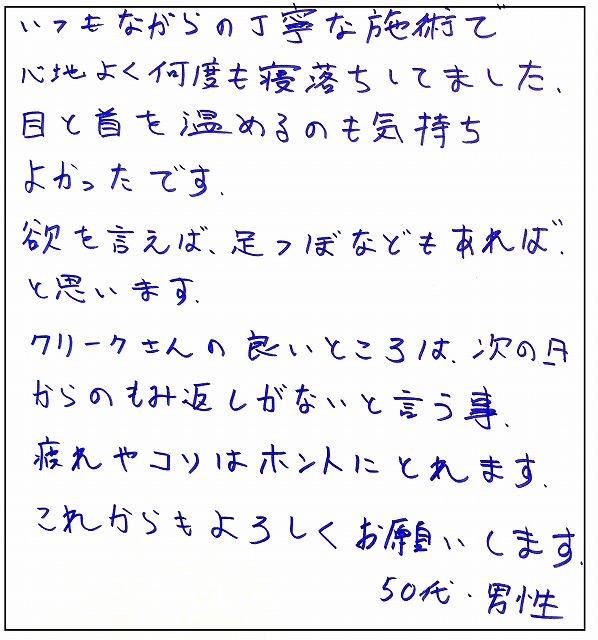 いつもながらの丁寧な施術で
心地よく何度も寝落ちしてました、
目と首を温めるのも気持ち
よかったです。
欲を言えば、足つぼなどもあれば、
と思います。
クリークさんの良いところは、次の日
からのもみ返しがないと言う事。
疲れやコリはホントにとれます。
これからもよろしくお願いします。
50代・男性